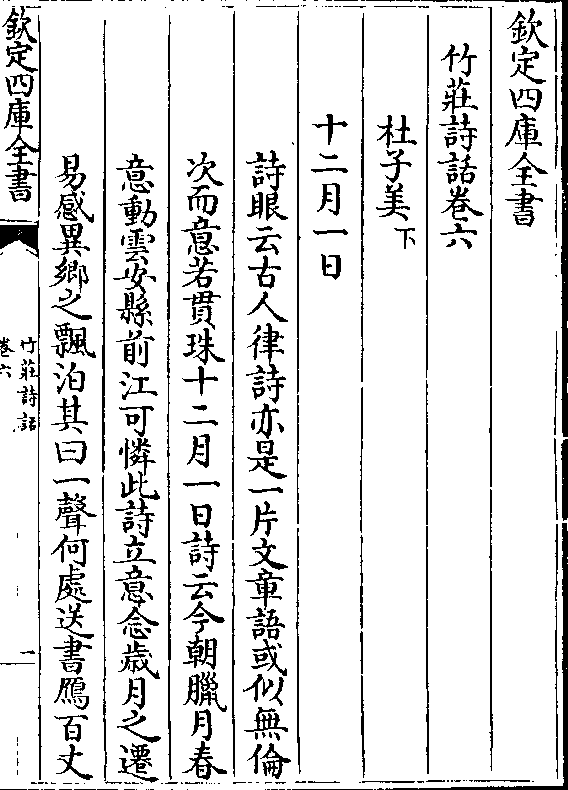 欽定四庫全書
竹莊詩話卷六
杜子美下
十二月一日
詩眼云古人律詩亦是一片文章語或似無倫
次而意若貫珠十二月一日詩云今朝臘月春
意動雲安縣前江可憐此詩立意念歲月之遷
易感異鄉之飄泊其曰一聲何處送書鴈百丈
欽定四庫全書
竹莊詩話
卷六
一